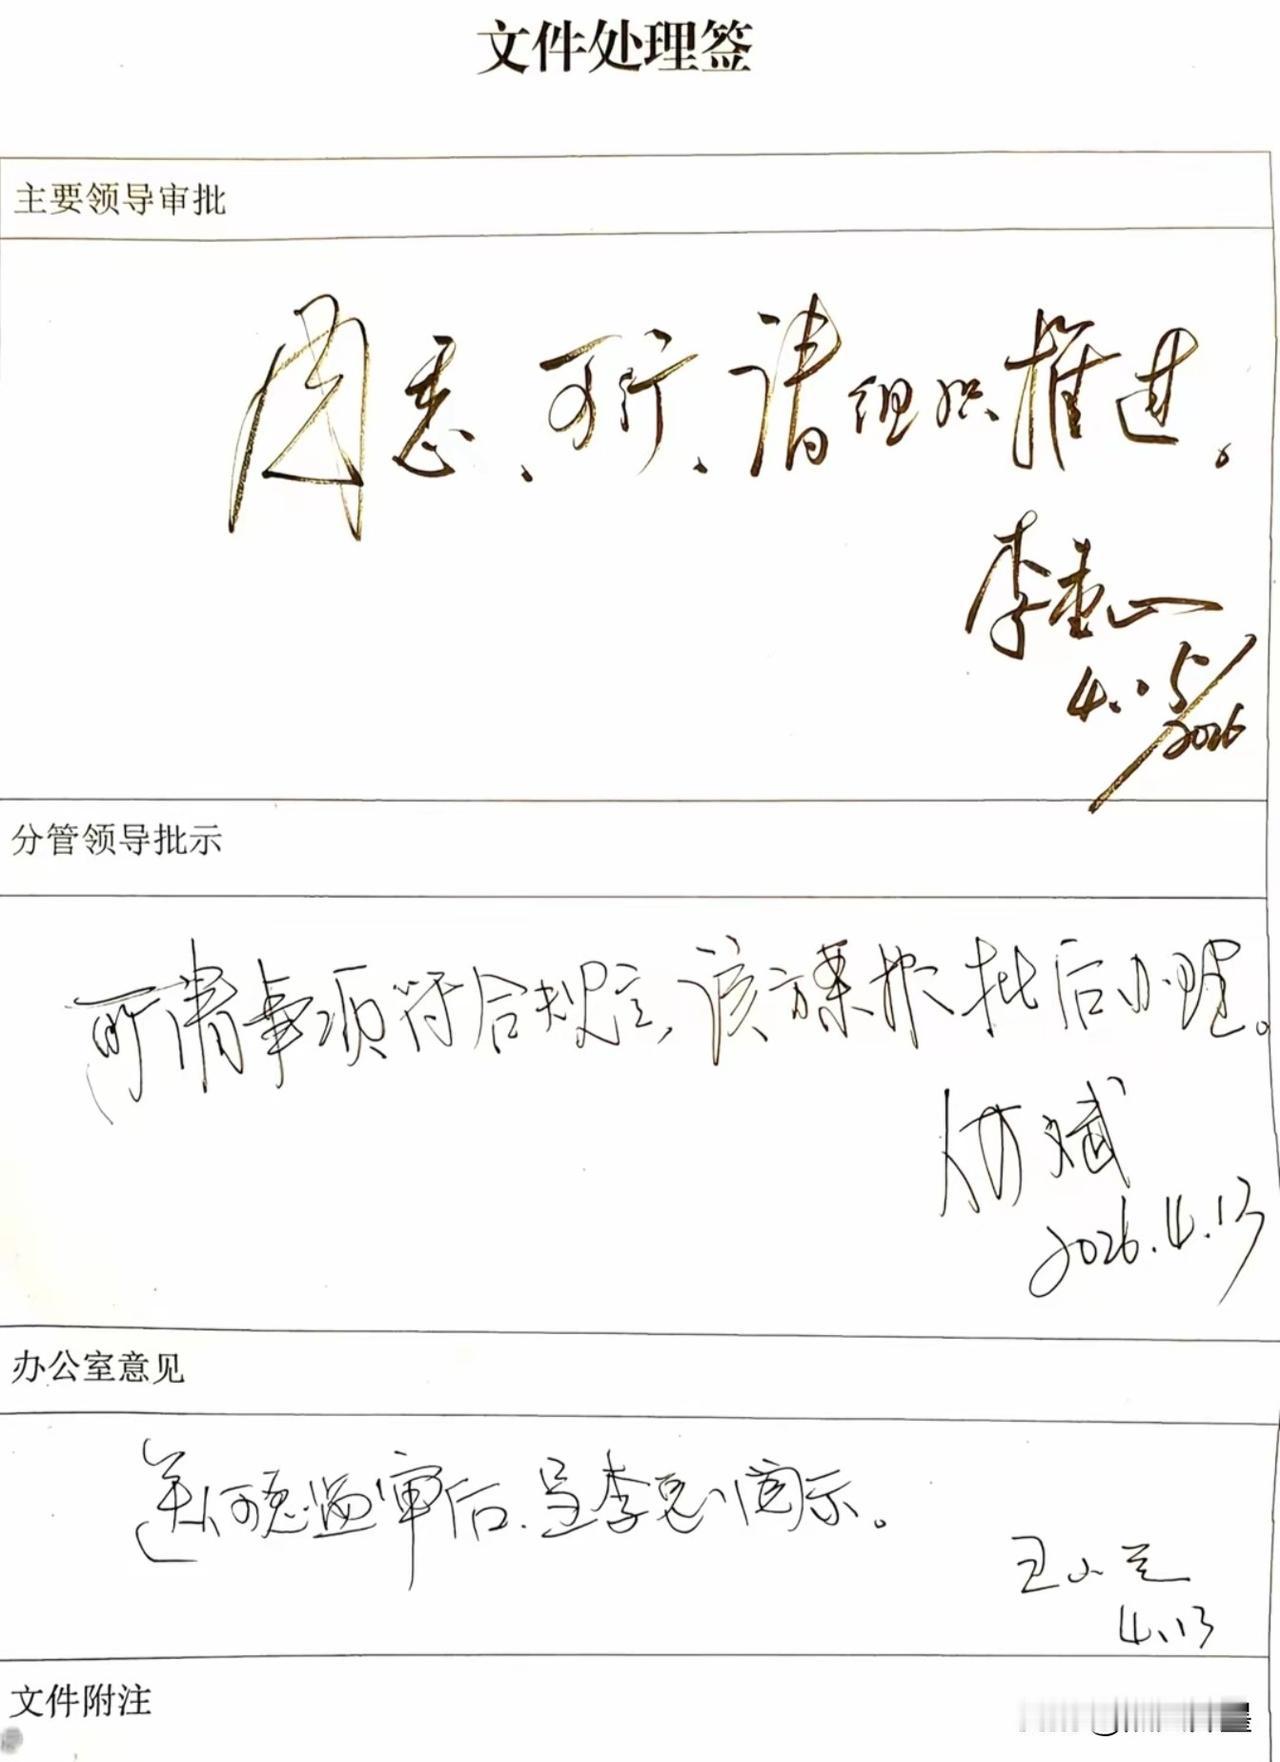 文件处理签
主要领导审批
阅悉、可行、请组织推进。
李重山
4.15/2026
分管领导批示
所请事项符合规定，该方案报批后办理。
何斌
2026.4.13
办公室意见
送何总监审后，呈李总阅示。
王小兰
4.13
文件附注